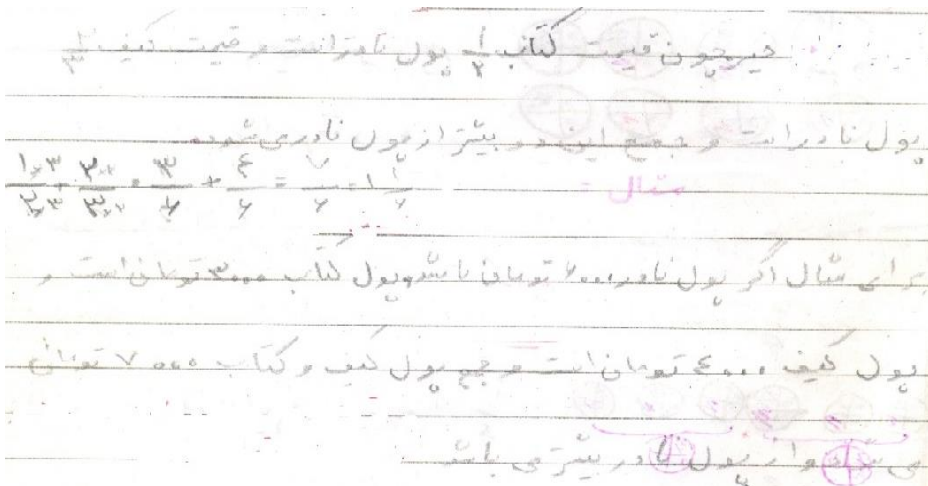 خیر چون قیمت کتاب ۱/۲ پول نادر است و قیمت کیف ۲/۳
پول نادر است و جمع این دو بیشتر از پول نادر می شود.
مثال
۱×۳/۲×۳ + ۲×۲/۳×۲ = ۳/۶ + ۴/۶ = ۷/۶ = ۱ ۱/۶
برای مثال اگر پول نادر ۶۰۰۰ تومان باشد پول کتاب ۳۰۰۰ تومان است و
پول کیف ۴۰۰۰ تومان است و جمع پول کیف و کتاب ۷۰۰۰ تومان
می شود و از پول نادر بیشتر می باشد